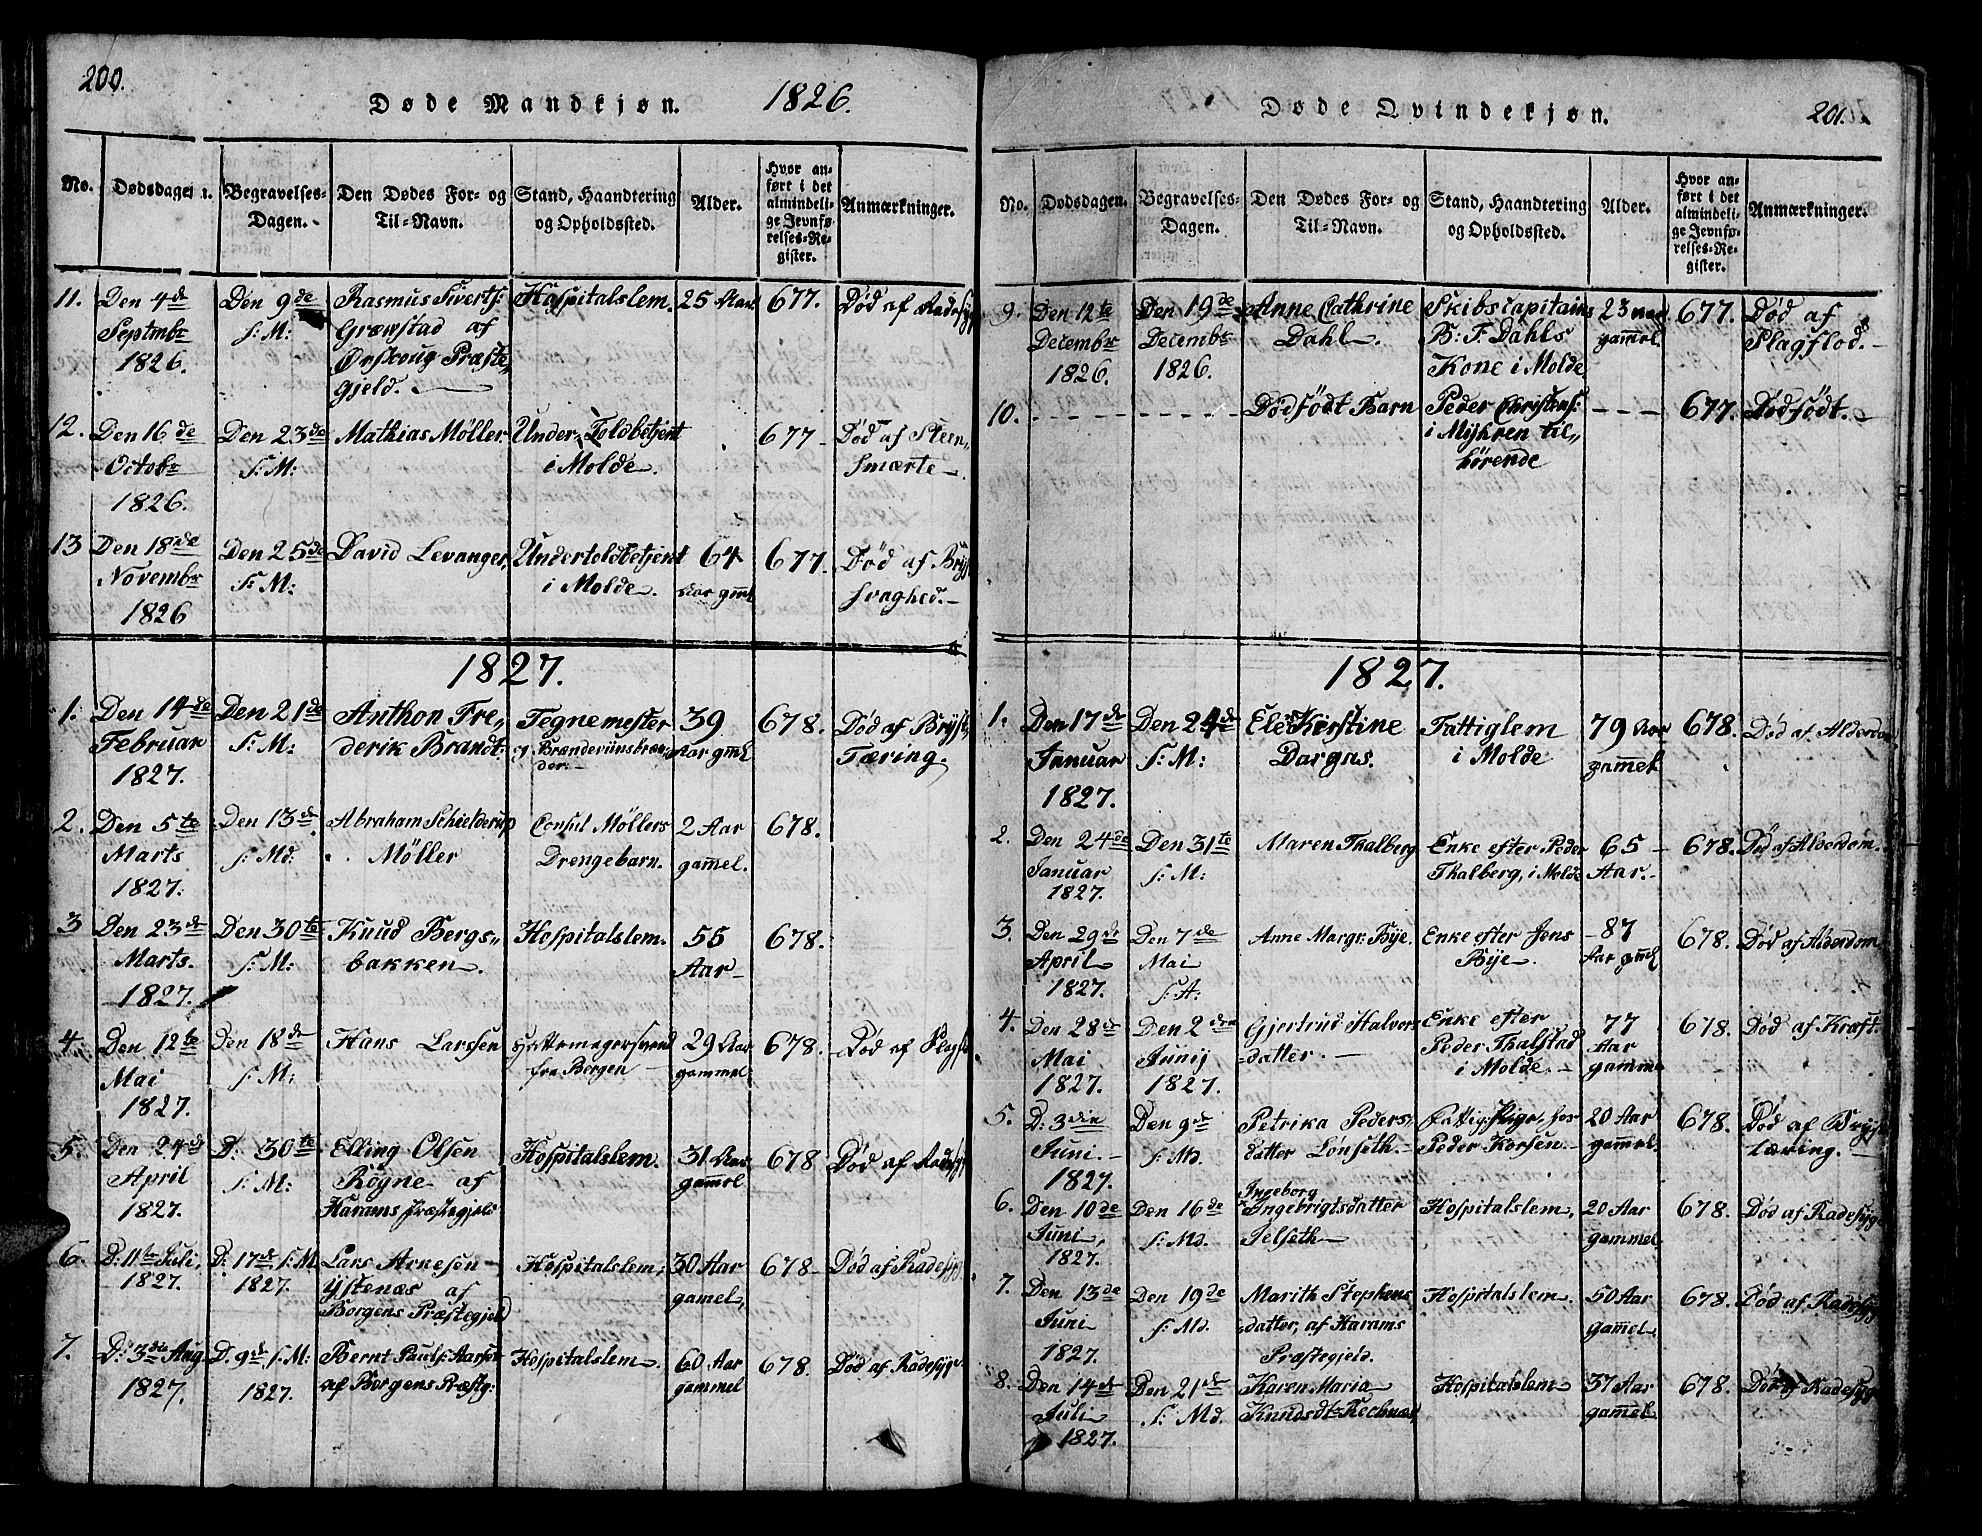 200.
Døde Mandkjøn. 1826.
No. Dødsdagen. Begravelses-Dagen. Den Dødes For- og Til-Navn. Stand, Haandtering og Opholdssted. Alder. Hvor anført i det almindelige Jevnførelses-Register. Anmærkninger.
11. Den 4de Den 9de Rasmus Siverts: Hospitalslem. 25 Aar 677. Død af Radesyg
Septembr S: M: Græwstad af
1826. Ørskoug Præste
Gjeld.
12. Den 16de Den 23de Mathias Møller Under Toldbetjent 677 Død af Steen
Octobr S: M: i Molde. Smærte
1826.
13 Den 18de Den 25de David Levanger, Undertoldbetjent 64 677. Død af Bryst
Novembr S: M: i Molde. Aar gml Svaghed.
1826
1827.
1. Den 14de Den 21de Anthon Fre Tegnemester 39 678. Død af Bryst
Februar S: M: derik Brandt. og Brændeviinsbræn Aar gml Tæring.
1827. der.
2. Den 5te Den 13de Abraham Schielderup Consul Møllers 2 Aar 678.
Marts S: Md: Møller Drengebarn. gammel.
1827.
3 Den 23de Den 30te Knud Bergs Hospitalslem. 55 678.
Marts. S: M: bakken. Aar
1827.
4. Den 12te Den 18de Hans Larssen Hattemagersvend 29 Aar 678. Død af
Mai S: M: fra Bergen gammel
1827.
5. Den 24de D. 30te Elling Olsen Hospitalslem. 31 Aar 678 Død af Radesyg
April S: M: Rögne af gammel
1827. Harams Præstegjeld
6. D: 11te Juli, D. 17de S: M Lars Arnesen Hospitalslem, 30 Aar 678 Død af Radesyg
1827. 1827. Ystenæs af gamel,
Borgens Præstegjeld
7. D: 3die Aug. D. 9de S: M: Bernt Pauls: Aarset Hospitalslem. 60 Aar 678. Død af Radesyge
1827. 1827. af Borgens Præstg: gammel
201.
Døde Qvindekjøn.
No. Dødsdagen. Begravelses-Dagen. Den Dødes For- og Til-Navn. Stand, Haandtering og Opholdssted. Alder. Hvor anført i det almindelige Jevnførelses-Register. Anmærkninger.
9. Den 12te Den 19de Anne Cathrine Skibscapitain 23 Aar 677. Død af
Decembr Decembr Dahl. B: F. Dahls gammel. Slagflod.
1826. 1826. Kone i Molde.
10. Dødfödt Barn Peder Christens: 677. Dødfödt.
i Myhren til
hørende
1827.
1. Den 17de Den 24de Kirstine Fattiglem 79 Aar 678. Død af Alderdom
Januar S: M: Dargas. i Molde gammel
1827.
2. Den 24de Den 31te Maren Thalberg Enke efter Peder 65 678. Død af Alderdom.
Januar S: M: Thalberg, i Molde Aar.
1827.
3. Den 29de Den 7de Anne Margr: Bije. Enke efter Jens 87 678. Død af Alderdom
April Mai Bije. Aar gml
1827. S: A:
4. Den 28de Den 2den Gjertrud Halvors Enke efter 77 678. Død af Kræft.
Mai Junij datter. Peder Thalstad Aar
1827. 1827. i Molde. gamme
5. D: 3die Den 9de Petrika Peders Fattig Pige, hos 20 Aar 678. Død af Bryst
Juni. S: Md. datter Lonseth. Peder Korsen. gammel. tæring.
1827.
6. Den 10de Den 16de Ingeborg Ingebrigtsdatter Hospitalslem, 20 Aar 678. Død af Radesyge
Juni, S: Md. Jelseth gammel
1827.
7. Den 13de Den 19de Marith Stephens Hospitalslem. 50 Aar 678. Død af Radesyg
Juni S: Md. datter, af Harams gammel,
1827. Præstegjeld.
8. Den 14de Den 21de Karen Maria Hospitalslem 37 Aar 678. Død af Radesyg
Juli S: Md. Knudsdt: gammel.
1827.